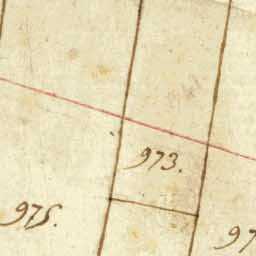 973.
975.
97